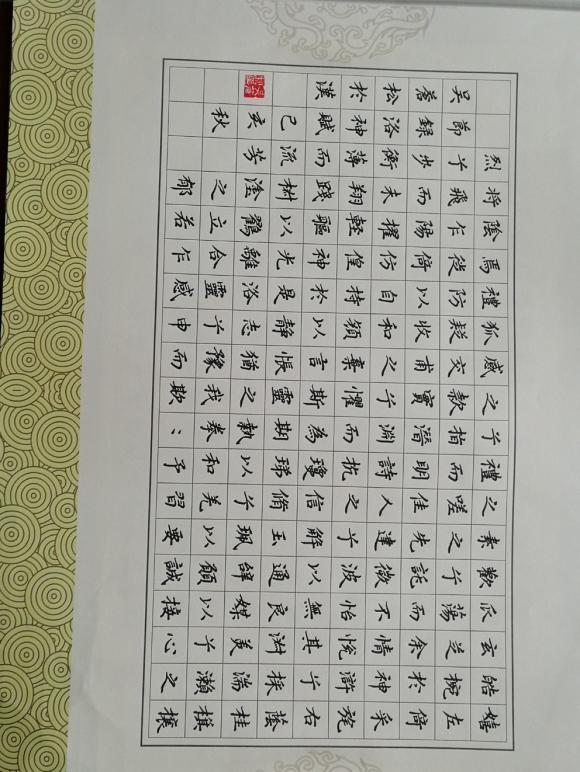 嬉左倚采旄右蔭桂旗攘
皓腕於神滸兮採湍瀨之
玄芝余情悅其淑美兮心
蕩而不怡無良媒以接
歡兮託微波以通辭願誠
素之先達兮解玉珮以要
之嗟佳人之信脩兮羌習
禮而明詩抗瓊珶以和予
兮指潛淵而為期執拳〻
之款實兮懼斯靈之我欺
感交甫之棄言悵猶豫而
狐疑收和顏以靜志兮申
禮防以自持於是洛靈感
焉徙倚仿偟神光離合乍
陰乍陽擢輕軀以鶴立若
將飛而未翔踐椒塗之郁
烈兮步衡薄而流芳
節錄洛神賦己亥秋
吳松於漢